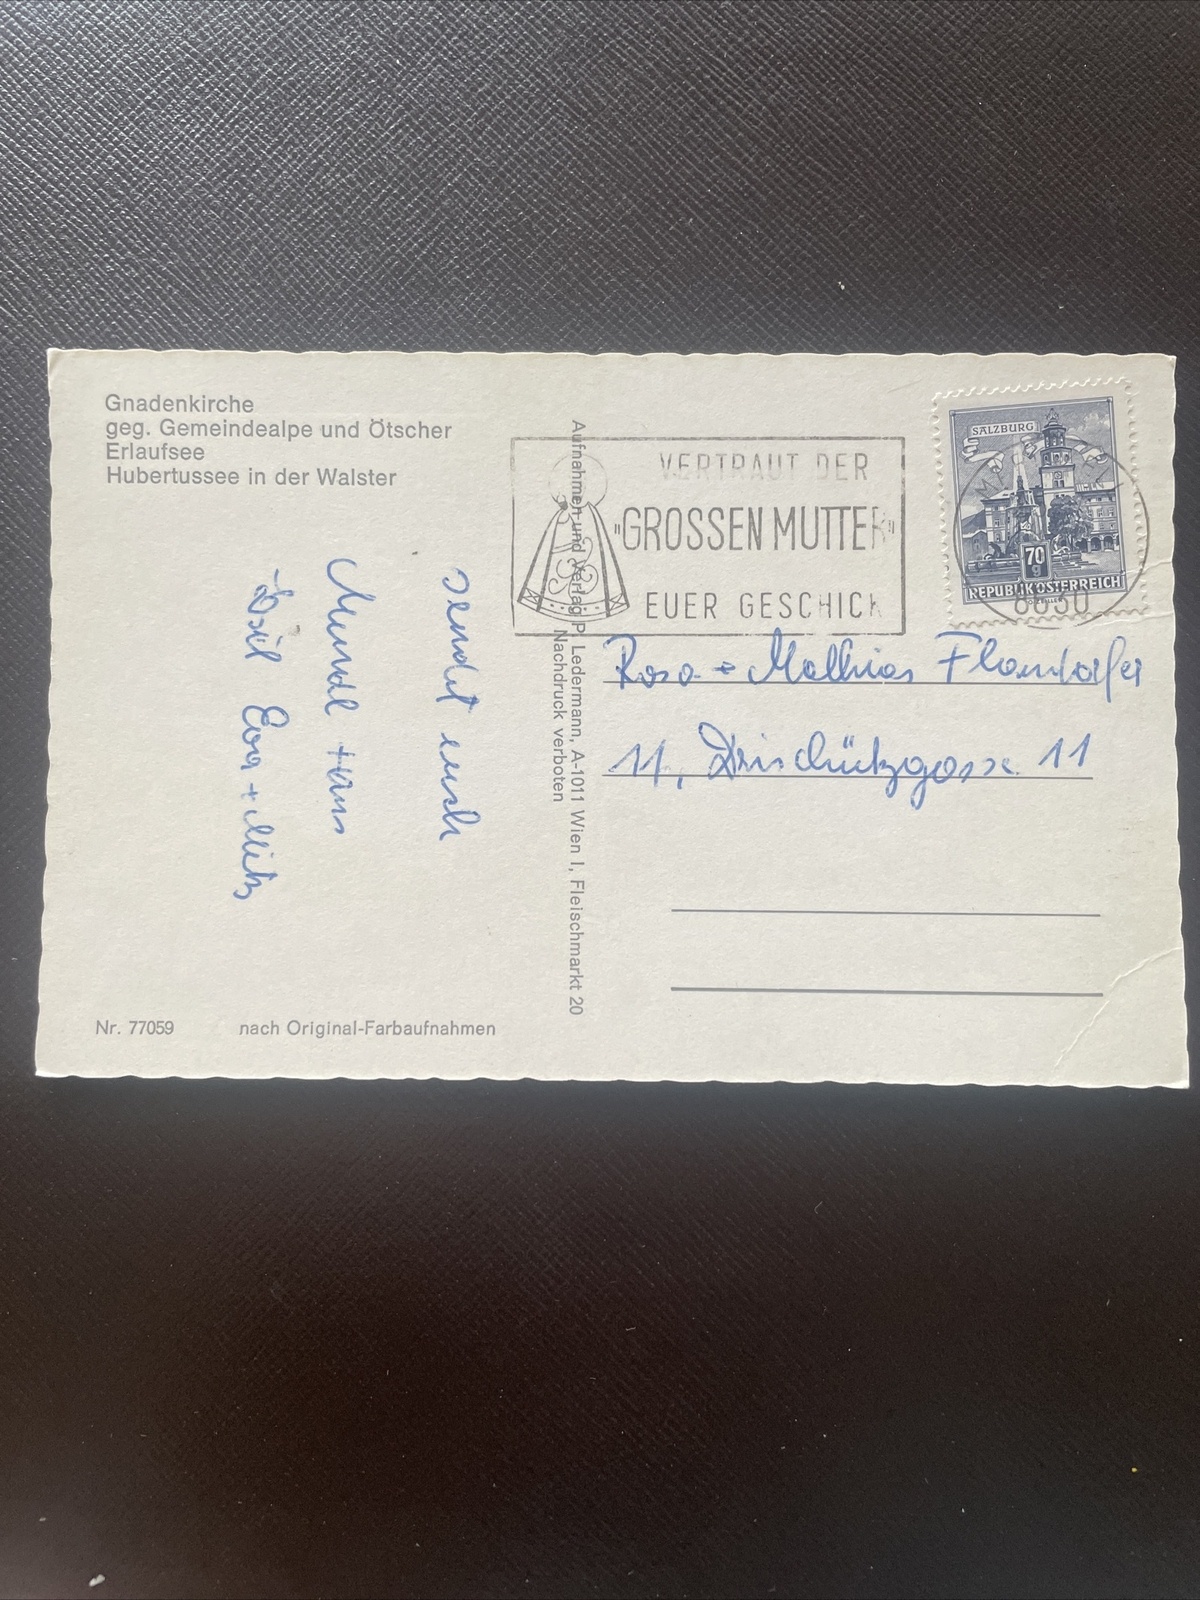 Gnadenkirche
geg. Gemeindealpe und Ötscher
Erlaufsee
Hubertussee in der Walster
sendet euch
Hans
Eva + Mitz
Nr. 77059 nach Original-Farbaufnahmen
Aufnahmen und Verlag P. Ledermann, A-1011 Wien I, Fleischmarkt 20
Nachdruck verboten
VERTRAUT DER
"GROSSEN MUTTER"
EUER GESCHICK
SALZBURG
70
g
REPUBLIK ÖSTERREICH
8630
Rosa + Mathias
11, 11